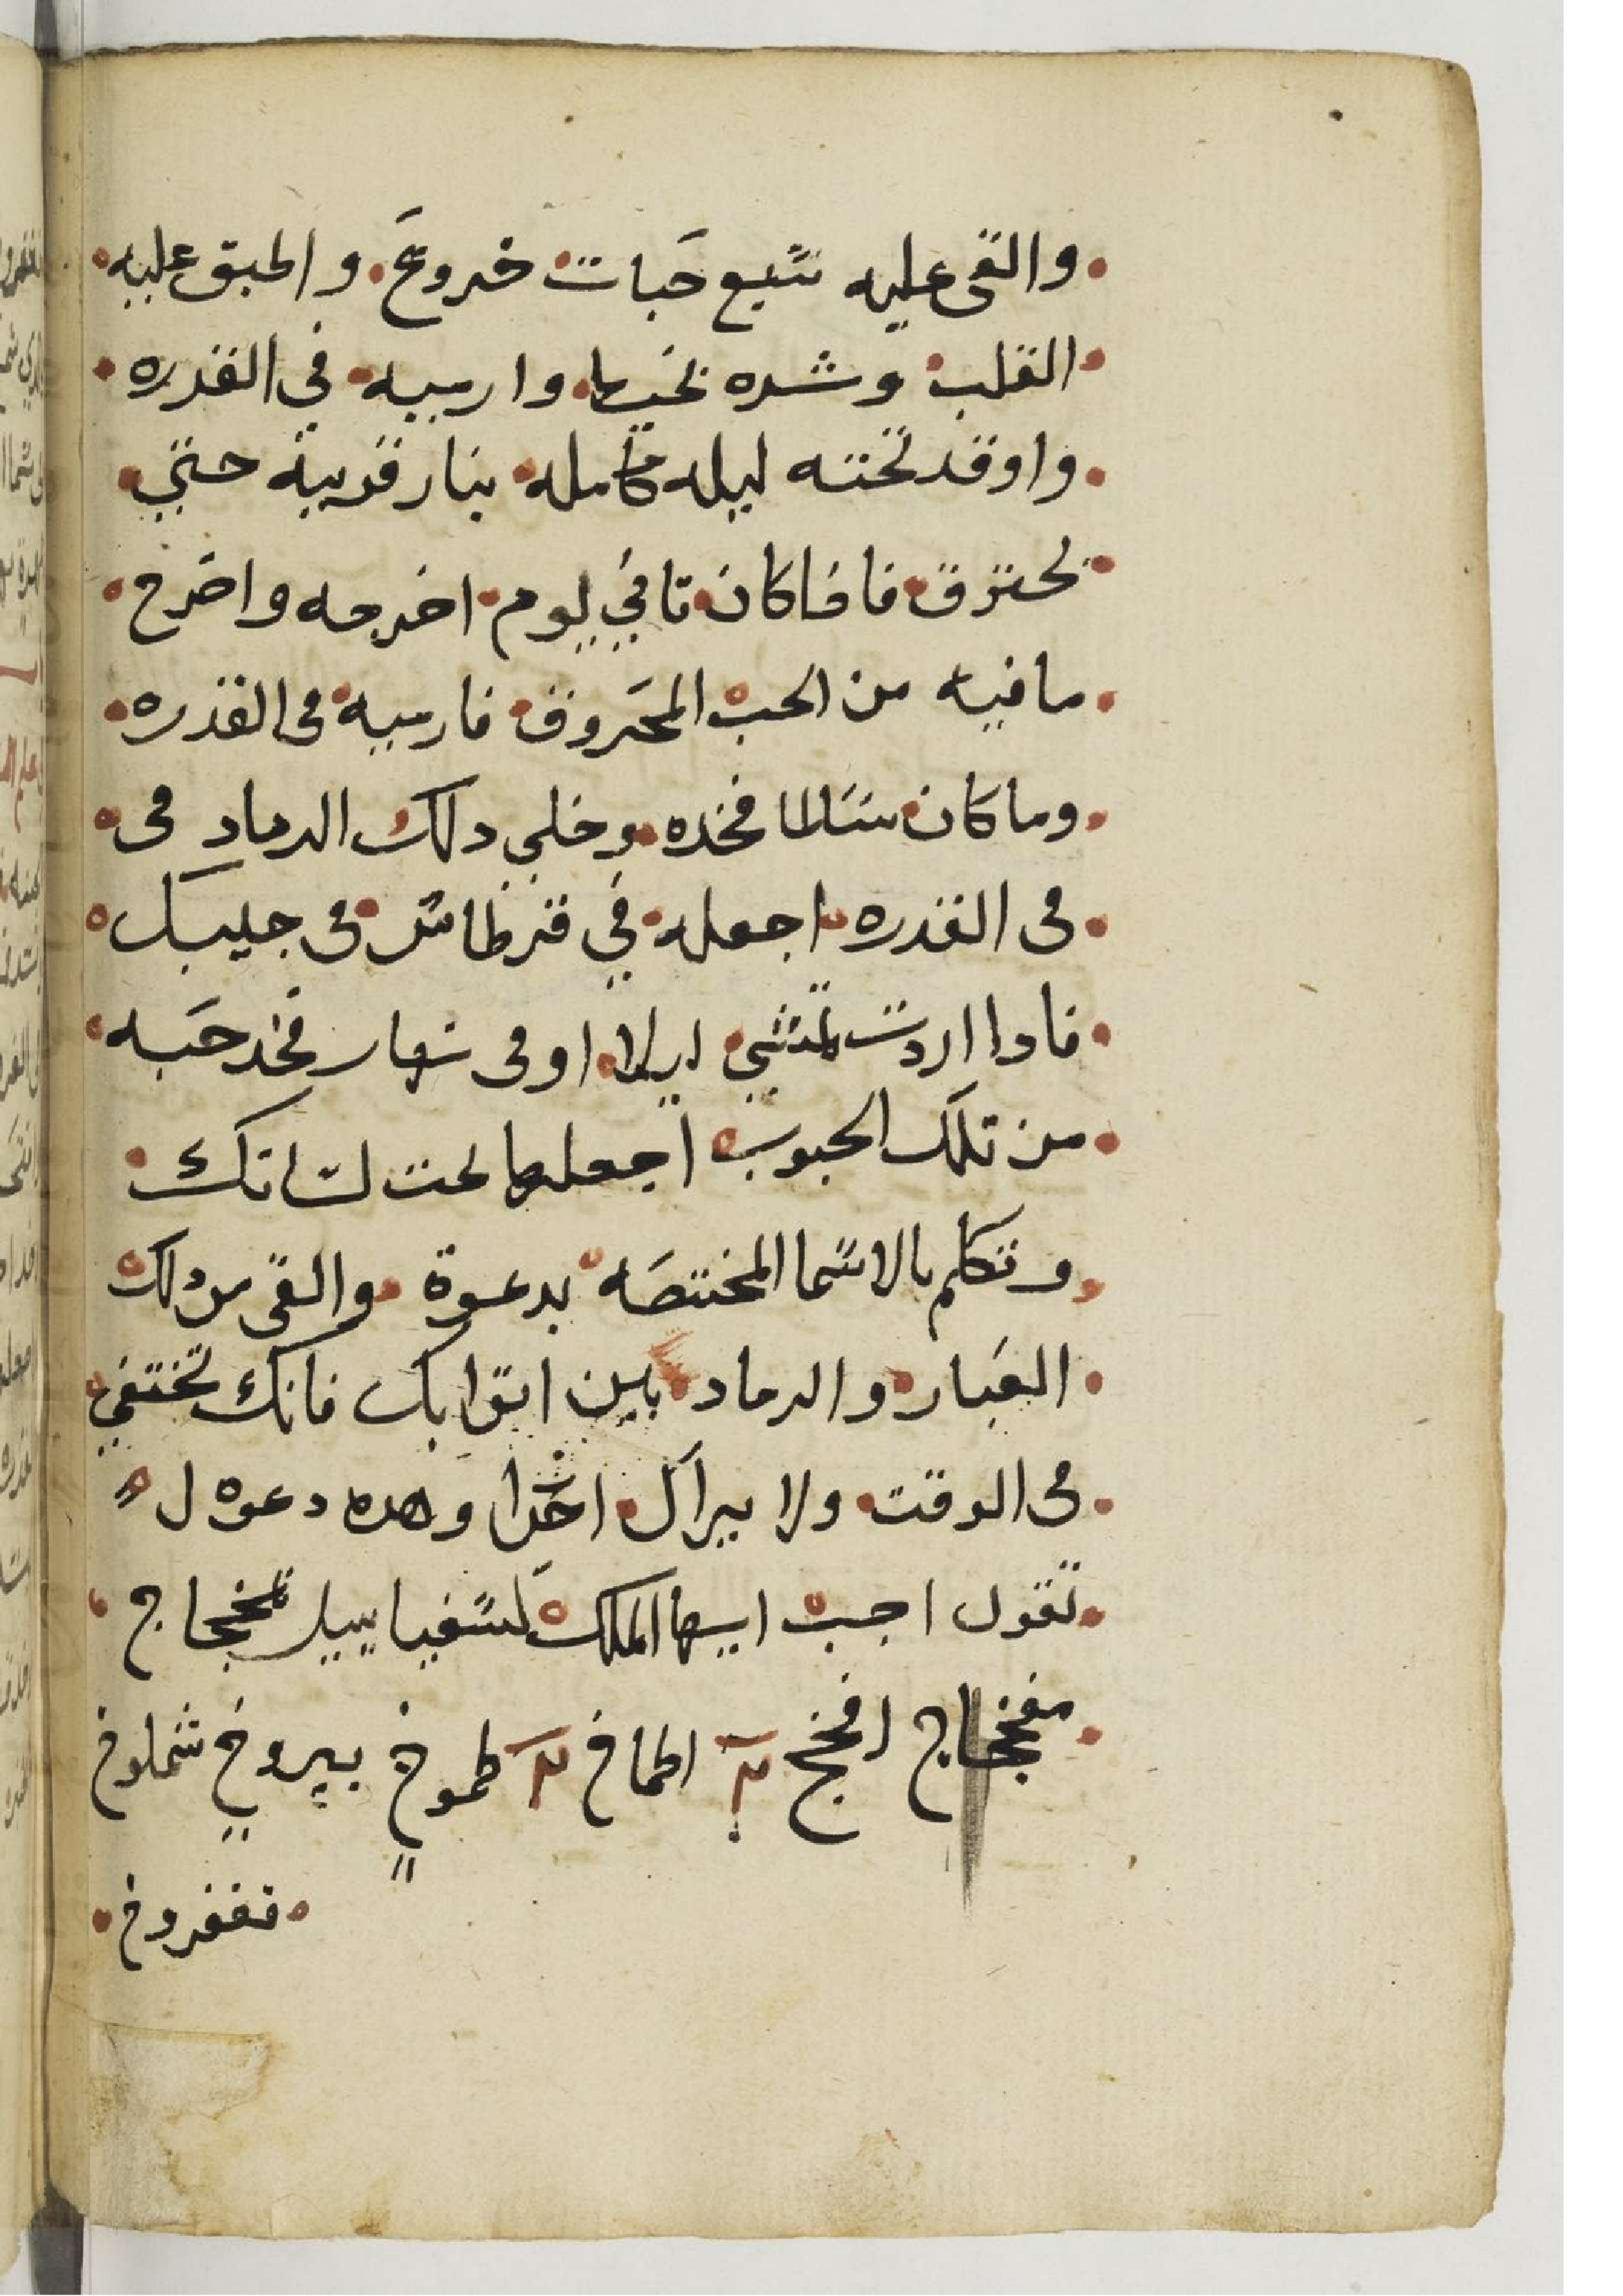 والقى عليه سبع حبات خروع والحبق عليه
القلب وشده بخيط وارميه في القدره
واوقد تحته ليله كامله بنار قويه حتي
يحترق فاذا كان تاني يوم اخرجه واخرج
ما فيه من الحب المحروق فارميه فى القدره
وما كان سالما فخده وخلي دلك الرماد فى
فى القدره اجعله في قرطاس فى جيبك
فادا اردت تمشي ليلا او فى نهار فخد حبه
من تلك الحبوب اجعلها تحت لسانك
وتكلم بالاسما المختصه بدعوة والقى من دلك
الغبار والرماد بين اتوابك فانك تختفي
فى الوقت ولا يراك احدا وهده دعوه ل ه
تقول اجب ايها الملك لسفياييل
مفخجاج افخج الطماخ طموخ بيروخ شملوخ
فغفروخ